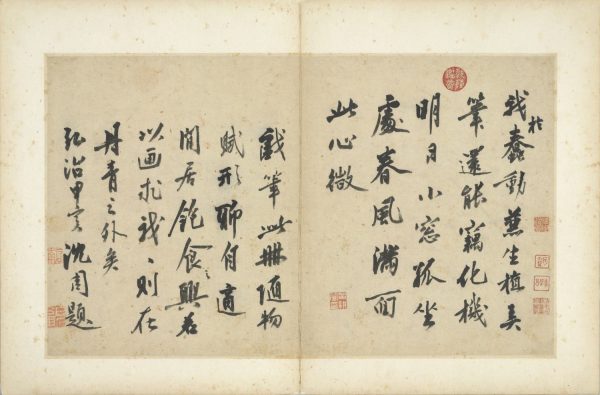 我於蠢動兼生植弄
筆還能竊化機
明日小窓孤坐
處春風滿面
此心微
戲筆此冊随物
賦形聊自適
閒居飽食之興若
以画求我〻則在
丹青之外矣
弘治甲寅沈周題